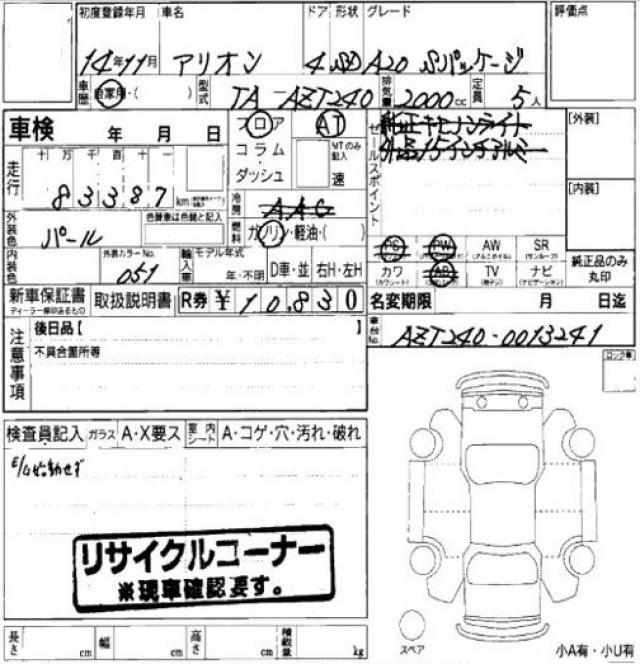 初度登録年月 車名 ドア 形状 グレード 評価点
14年11月 アリオン 4 SD A20 Sパッケージ
車歴 自家用・( ) 型式 TA-AZT240 排気量 2000cc 定員 5人
車検 年 月 日 フロア AT セールスポイント 純正キセノンライト [外装]
コラム MTのみ記入 外品15インチアルミ
走行 十万千百十一 ダッシュ 速
83387 km 冷房 AAC [内装]
外装色 パール 色替車は色替と記入 燃料 ガソリン・軽油・( )
PS PW AW SR
(アルミホイル) (サンルーフ)
内装色 外装カラーNo. 051 輸入車 モデル年式 年・不明 D車・並 右H・左H カワ AB TV ナビ 純正品のみ丸印
(カワシート) (地デジ) (ナビゲーション)
新車保証書 取扱説明書 R券 ¥10,830 名変期限 月 日迄
ディーラー印あるもの
注意事項 後日品【 車台No. AZT240-0013241
不具合箇所等 ロック車
検査員記入 ガラス A・X要ス 室内シート A・コゲ・穴・汚れ・破れ
E/G始動せず
リサイクルコーナー
※現車確認要す。
長さ cm 幅 cm 高さ cm 積載量 kg スペア 小A有・小U有